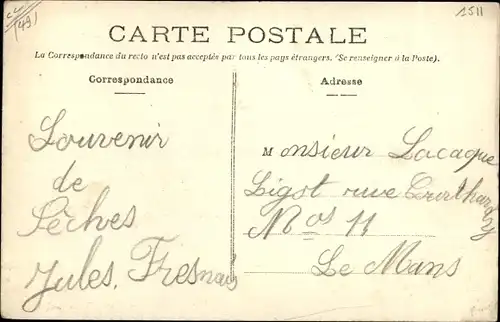 CL
(49)
1511
CARTE POSTALE
La Correspondance du recto n'est pas acceptée par tous les pays étrangers. (Se renseigner à la Poste).
Correspondance
Adresse
Souvenir
de
Pêches
Jules. Fresnais
Monsieur Lacaque
Ligot rue
Nos 11
Le Mans